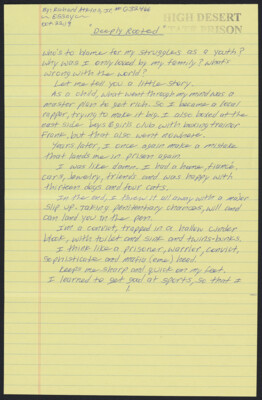 HIGH DESERT
STATE PRISON
"Deeply Rooted"
Who's to blame for my struggles as a youth?
Why was I only loved by my family? What's
wrong with the world?
Let me tell you a little story.
As a child, what went through my mind was a
master plan to get rich. So I became a local
rapper, trying to make it big. I also boxed at the
east side boys & girls club with boxing trainer
Frank, but that also went nowhere.
Years later, I once again make a mistake
that lands me in prison again.
I was like damn. I had a home, fiance,
cars, jewelry, friends and was happy with
thirteen dogs and four cats.
In the end, I threw it all away with a major
slip up. Taking penitentiary chances, will and
can land you in the pen.
I'm a convict, trapped in a hollow cinder
block, with toilet and sink and twins-bunks.
I think like a prisoner, warrior, convict,
sophisticator and mafia (one) head.
Keeps me sharp and quick on my feet.
I learned to get good at sports, so that I